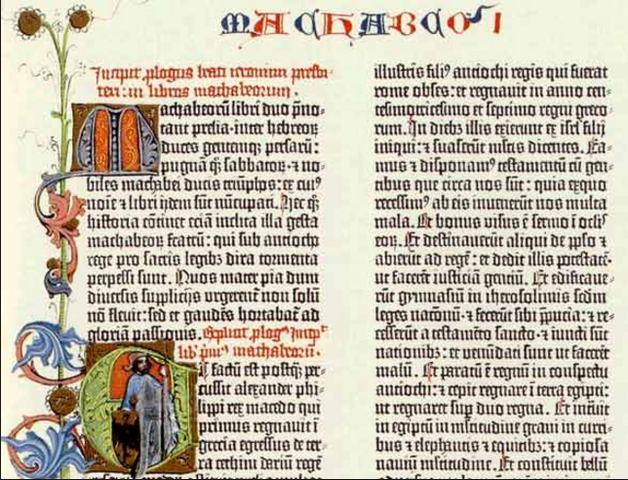 MACHABEOR I
Incipit plogus beati ieronimi presbi-
teri: in libros machabeorum.
Machabeorū libri duo p̄no-
tant prelia·inter hebreorꝝ
duces gentemqꝫ persarū:
pugnā qꝫ sabbatorꝝ·ꞇ no-
biles machabei ducis triūphos: ex cuiꝰ
noīe ꞇ libri ijdem sūt nūcupati. Hec qꝫ
historia cōtinet eciā inclita illa gesta
machabeorꝝ fratrū: qui sub antiocho
rege pro sacris legibꝫ dira tormenta
perpessi sunt. Quos mater pia dum
diuersis supplicijs urgerent̄ non solū
nō fleuit: sed et gaudēs hortabat̄ ad
gloriā passionis. Explicit plogꝰ Incipit
lib' primꝰ machabeorū.
Et factū est postqꝫ per-
cussit alexander phi-
lippi rex macedo qui
primus regnauit ī
grecia egressus de ter-
ra cethim dariū regē
illustris filiꝰ antiochi regis qui fuerat
rome obses: et regnauit in anno cen-
tesimotricesimo et septimo regni greco-
rum. In diebꝫ illis exierunt ex isrl filij
iniqui: ꞇ suaserūt multis dicentes. Ea-
mus ꞇ disponamꝰ testamentū cū gen-
tibus que circa nos sūt: quia ex quo
recessimꝰ ab eis inuenerūt nos multa
mala. Et bonus visus ē sermo ī oclis
eorꝝ. Et destinauerūt aliqui de pp̄lo ꞇ
abierūt ad regē: et dedit illis potestatē·
ut facerēt iusticiā gentiū. Et edificaue-
rūt gymnasiū in iherosolimis sedm
leges nationū·ꞇ fecerūt sibi p̄pucia: ꞇ re-
cesserūt a testamento sancto·ꞇ iuncti sūt
nationibꝫ: et uenūdati sunt ut facerēt
malū. Et paratū ē regnū in conspectu
antiochi: ꞇ cepit regnare ī terra egipti:
ut regnaret sup duo regna. Et intrauit
in egiptū in multitudine graui in curri-
bus ꞇ elephantis ꞇ equitibꝫ: ꞇ copiosa
nauiū multitudine. Et constituit bellū